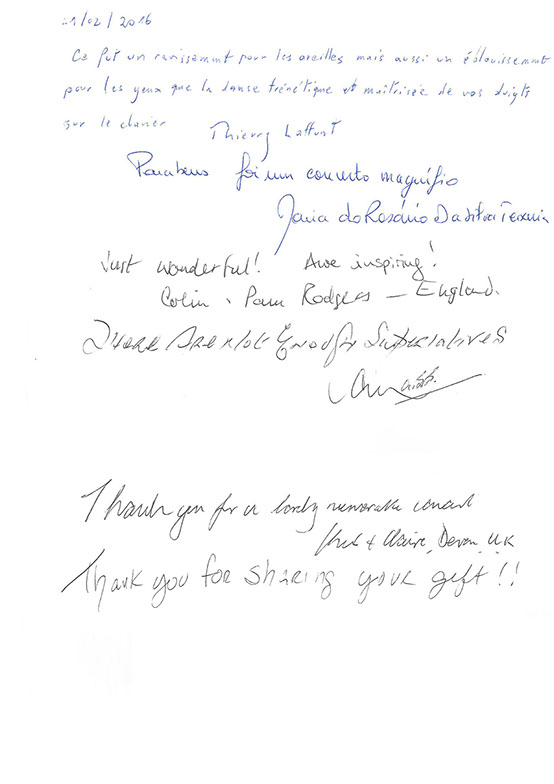 1/02/2016
Ce fut un ravissement pour les oreilles mais aussi un éblouissement
pour les yeux que la danse frénétique et maîtrisée de vos doigts
sur le clavier
Thierry
Parabens foi um concerto magnifio
Maria do Rosário Da Silva Teixeira
Just wonderful! Awe inspiring!
Colin . Pam Rodgers — England.
There Are Not Enough Superlatives
Thank you for a lovely memorable concert
+ Claire, Devon, U.K
Thank you for sharing your gift!!